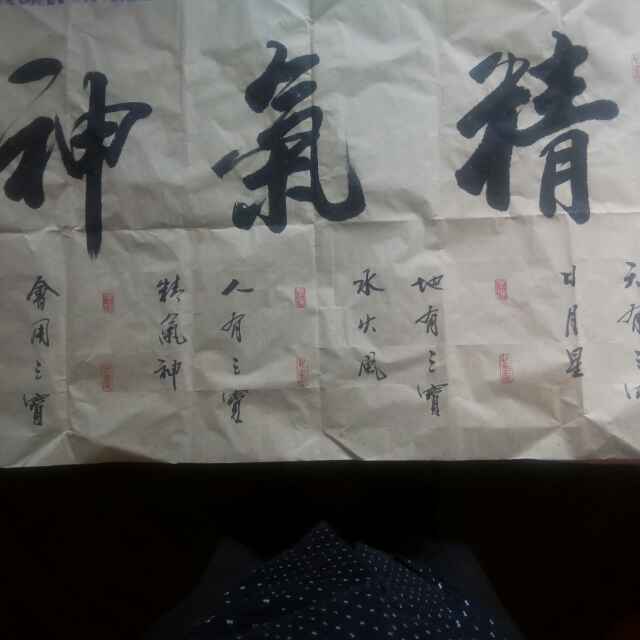 精氣神
天有三寶
日月星
地有三寶
水火風
人有三寶
精氣神
會用三寶